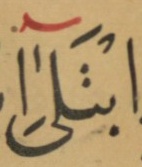 ابْتَلَىٰٓ